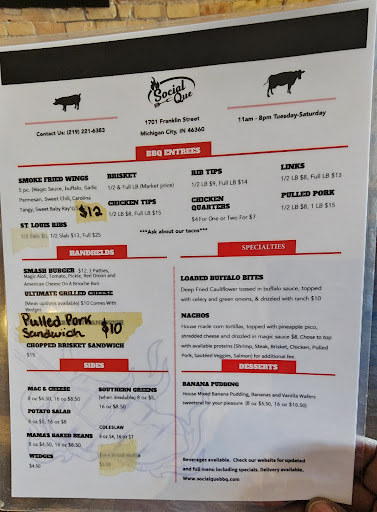 Social
Que
Contact Us: (219) 221-6383
1701 Franklin Street
Michigan City, IN 46360
11am - 8pm Tuesday-Saturday
BBQ ENTREES
SMOKE FRIED WINGS
5 pc. (Magic Sauce, Buffalo, Garlic
Parmesan, Sweet Chili, Carolina
Tangy, Sweet Baby Ray's)
$12
ST. LOUIS RIBS
1/2 Slab $13, Full $25
BRISKET
1/2 & Full LB (Market price)
CHICKEN TIPS
1/2 LB $8, Full LB $15
RIB TIPS
1/2 LB $9, Full LB $14
CHICKEN
QUARTERS
$4 For One or Two For $7
LINKS
1/2 LB $8, Full LB $13
PULLED PORK
1/2 LB $8, 1 LB $15
***Ask about our tacos***
HANDHELDS
SMASH BURGER $12, 2 Patties,
Magic Aioli, Tomato, Pickle, Red Onion and
American Cheese On A Brioche Bun
ULTIMATE GRILLED CHEESE
(Meat options available) $10 Comes With
Wedges
Pulled Pork
Sandwich $10
CHOPPED BRISKET SANDWICH
$15
SPECIALTIES
LOADED BUFFALO BITES
Deep Fried Cauliflower tossed in buffalo sauce, topped
with celery and green onions, & drizzled with ranch $10
NACHOS
House made corn tortillas, topped with pineapple pico,
shredded cheese and drizzled in magic sauce $8. Chose to top
with available proteins (Shrimp, Steak, Brisket, Chicken, Pulled
Pork, Sautéed Veggies, Salmon) for additional fee.
SIDES
MAC & CHEESE
8 oz $4.50, 16 oz $8.50
POTATO SALAD
8 oz $5, 16 oz $8
MAMA'S BAKED BEANS
8 oz $4.50, 16 oz $8.50
WEDGES
$4.50
SOUTHERN GREENS
(when available) 8 oz $5,
16 oz $8.50
COLESLAW
8 oz $4, 16 oz $7
DESSERTS
BANANA PUDDING
House Mixed Banana Pudding, Bananas and Vanilla Wafers
sweetend for your pleasure (8 oz $5.50, 16 oz $10.50)
Beverages available. Check our website for updated
and full menu including specials. Delivery available.
www.socialquebbq.com